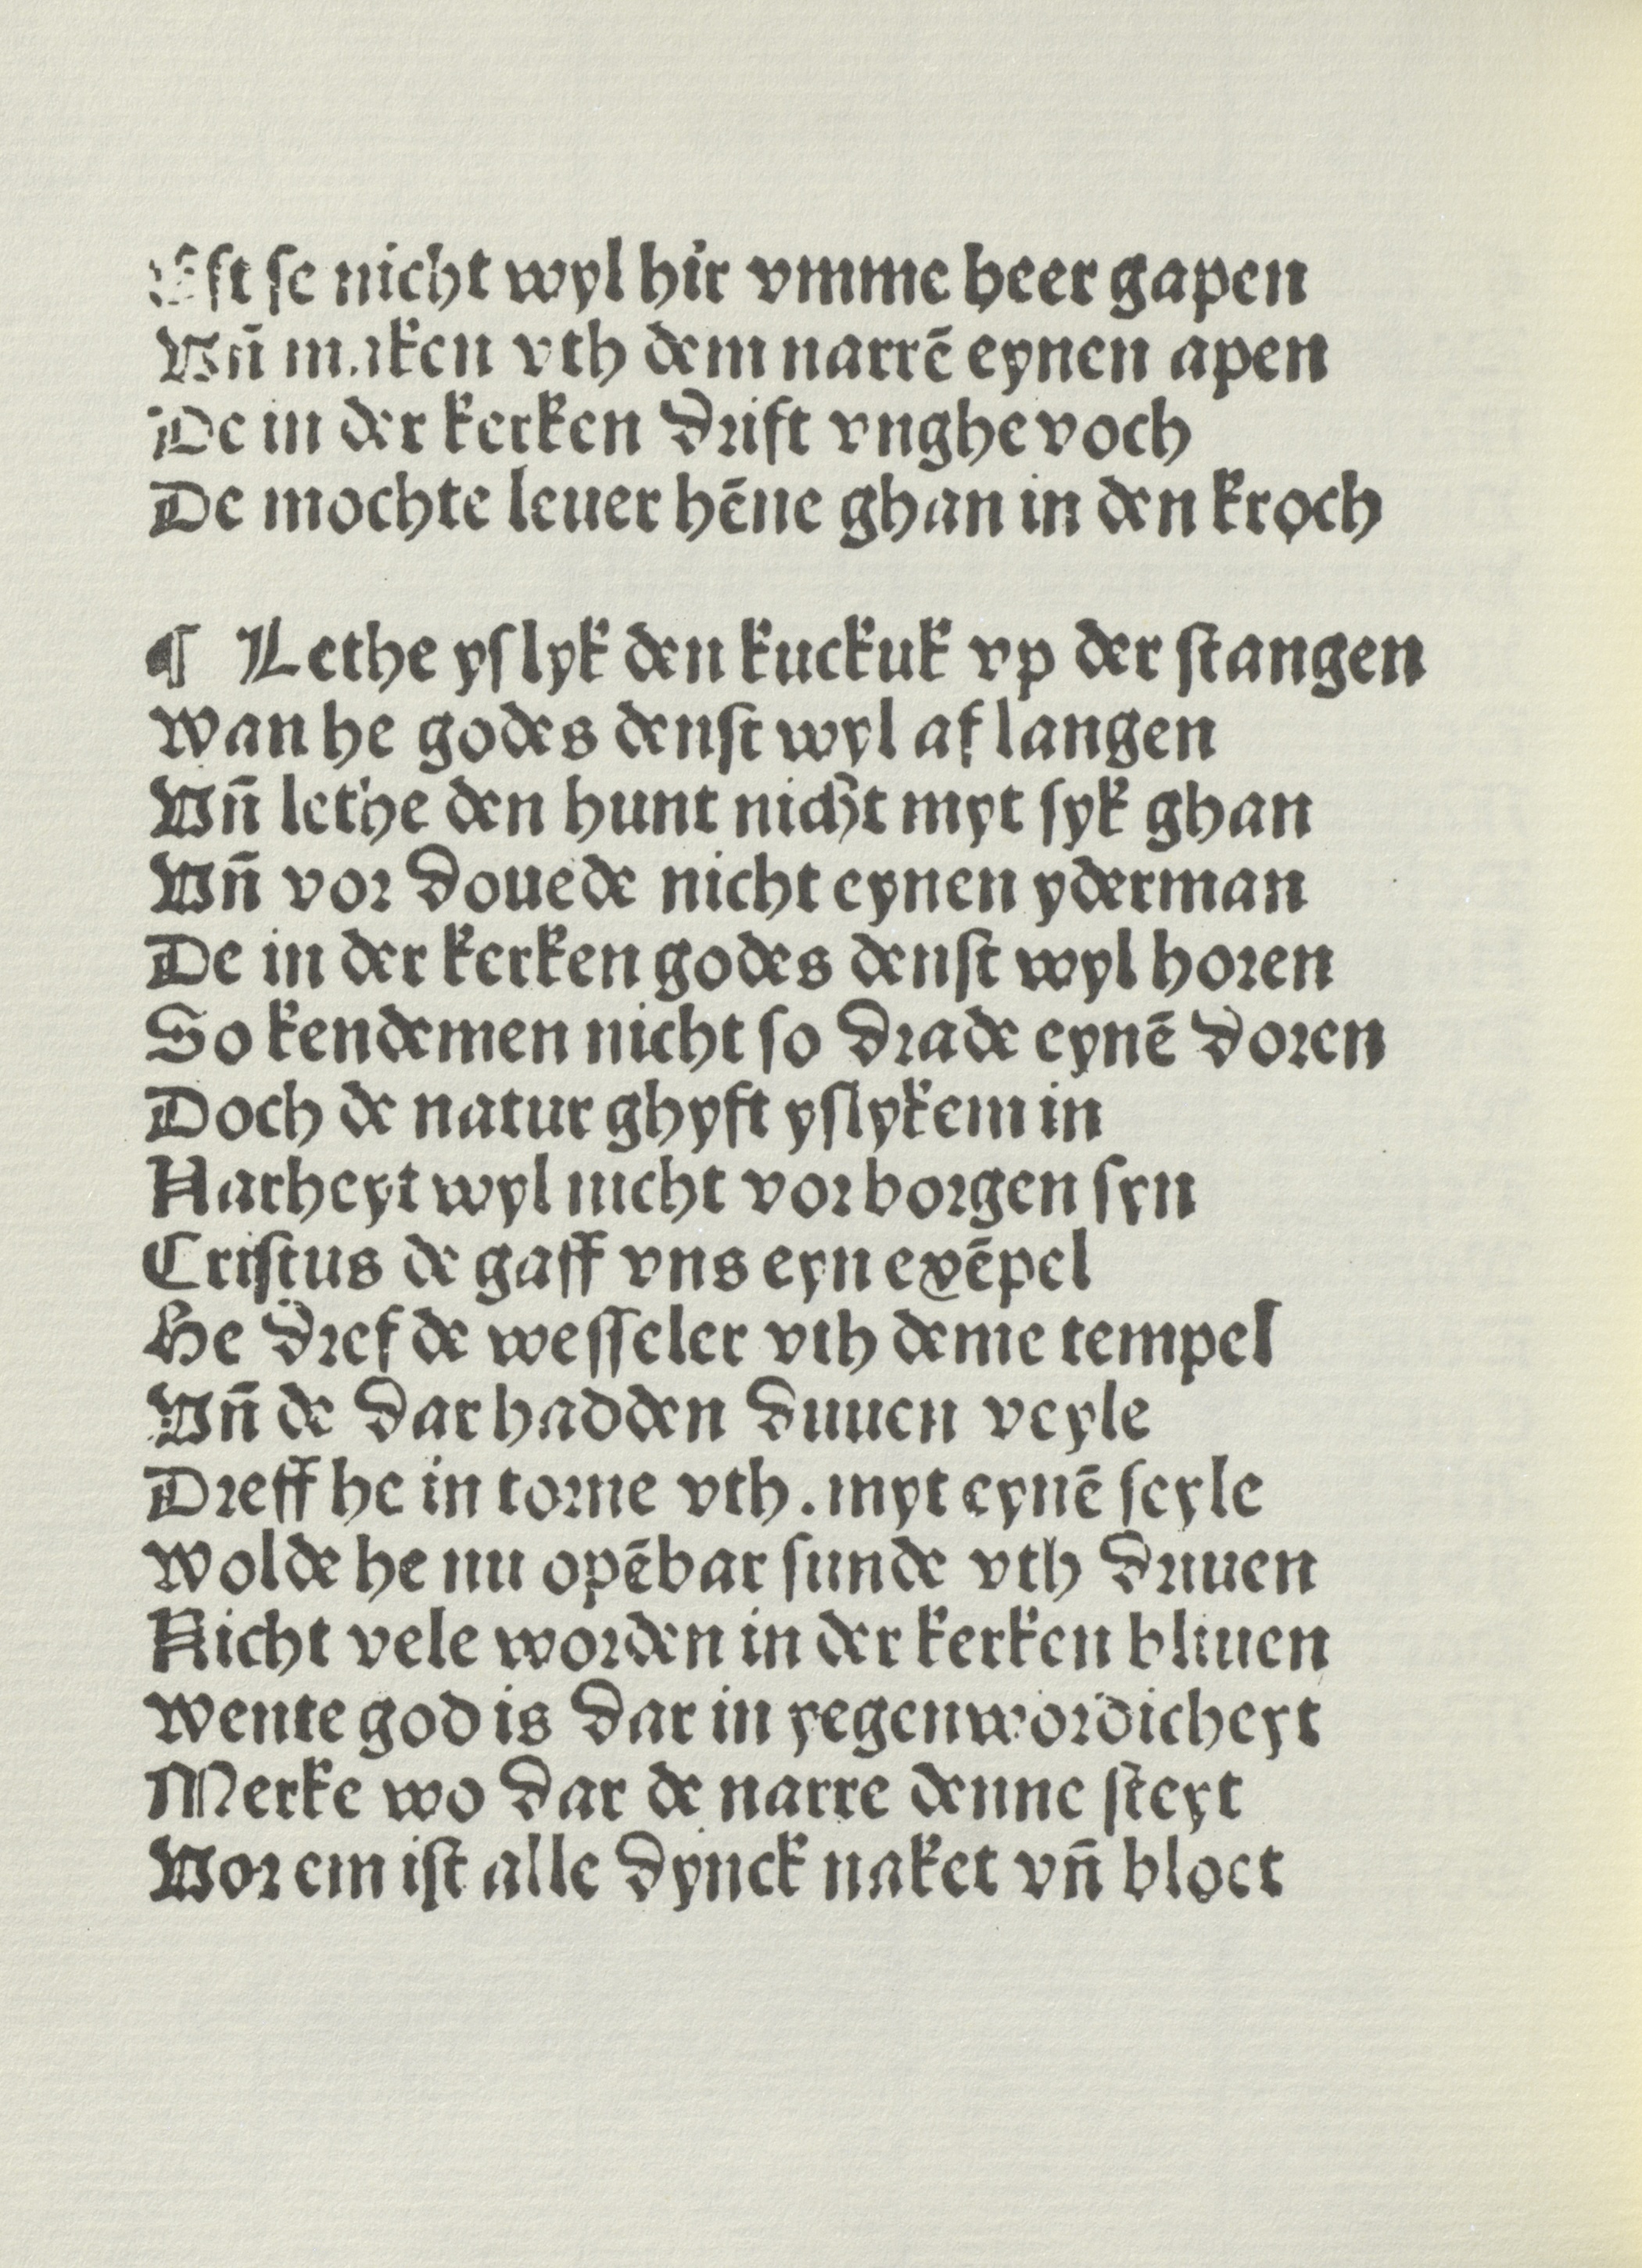 Eft se nicht wyl hir vmme heer gapen
Vn̄ maken vth dem narrē eynen apen
De in der kerken drift vnghevoch
De mochte leuer hēne ghan in den kroch
¶ Lethe yslyk den kuckuk vp der stangen
Wan he godes denst wyl aflangen
Vn̄ lethe den hunt nicht myt syk ghan
Vn̄ vor douede nicht eynen yderman
De in der kerken godes denst wyl horen
So kendemen nicht so drade eynē doren
Doch de natur ghyft yslykem in
Narheyt wyl nicht vorborgen syn
Cristus de gaff vns eyn exēpel
He dref de wesseler vth deme tempel
Vn̄ de dar hadden duuen veyle
Dreff he in torne vth. myt eynē seyle
Wolde he nu opēbar sunde vth driuen
Nicht vele worden in der kerken bliuen
Wente god is dar in yegenwordicheyt
Merke wo dar de narre denne steyt
Vor em ist alle dynck naket vn̄ bloet